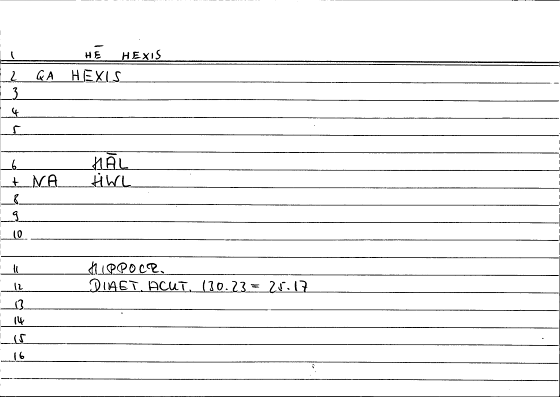 1 HĒ HEXIS
2 QA HEXIS
3
4
5
6 ḤĀL
+ NA ḤWL
8
9
10
11 HIPPOCR.
12 DIAET. ACUT. 130.23 = 25.17
13
14
15
16